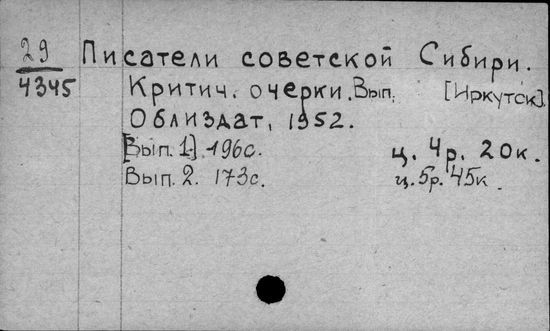 29 Писатели советской Сибири.
4345 Критич. очерки. Вып. [Иркутск].
Облиздат, 1952.
[Вып. 1.] 196с. ц. 4р. 20к.
Вып. 2. 173с. ц. 5р. 45к.